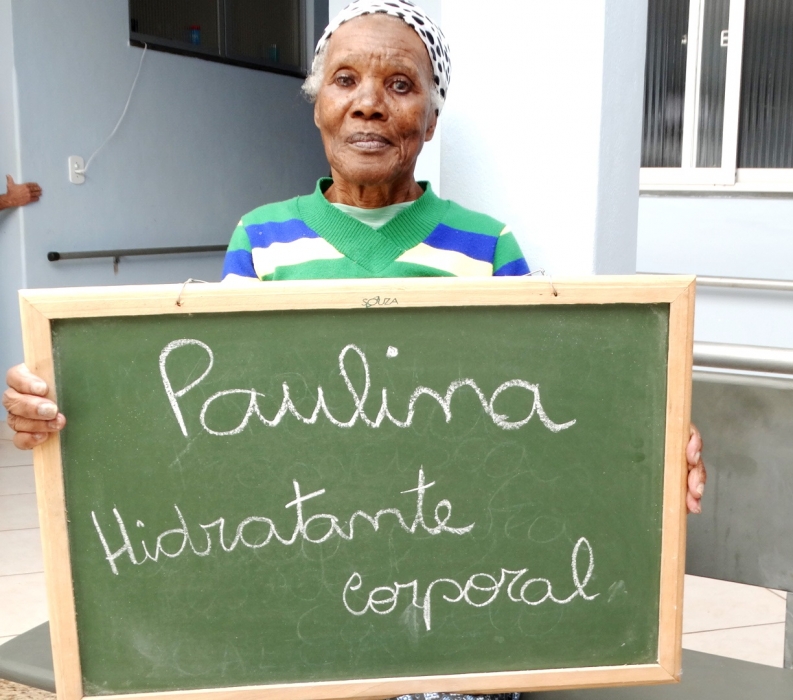 Paulina
Hidratante
corporal